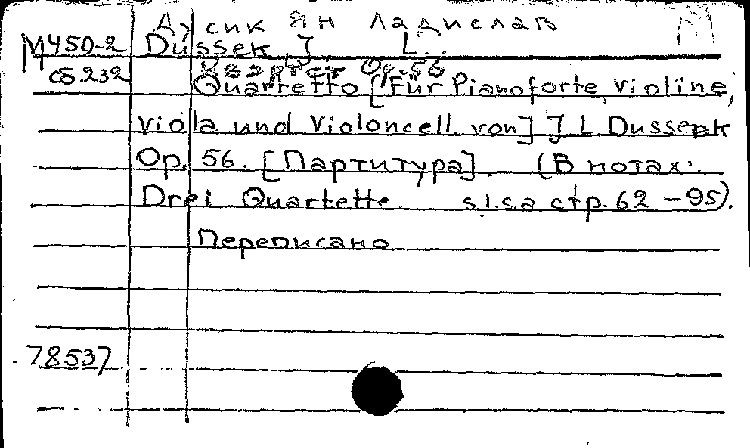 Дусик Ян Ладислав
M450-2 Dussek J. L.
сб.232 Quartetto [Für Pianoforte, Violine,
Viola und Violoncell von] J L Dussek
Op. 56. [Партитура]. (В нотах:
Drei Quartette s.l.sa стр. 62 - 95).
Переписано
78537